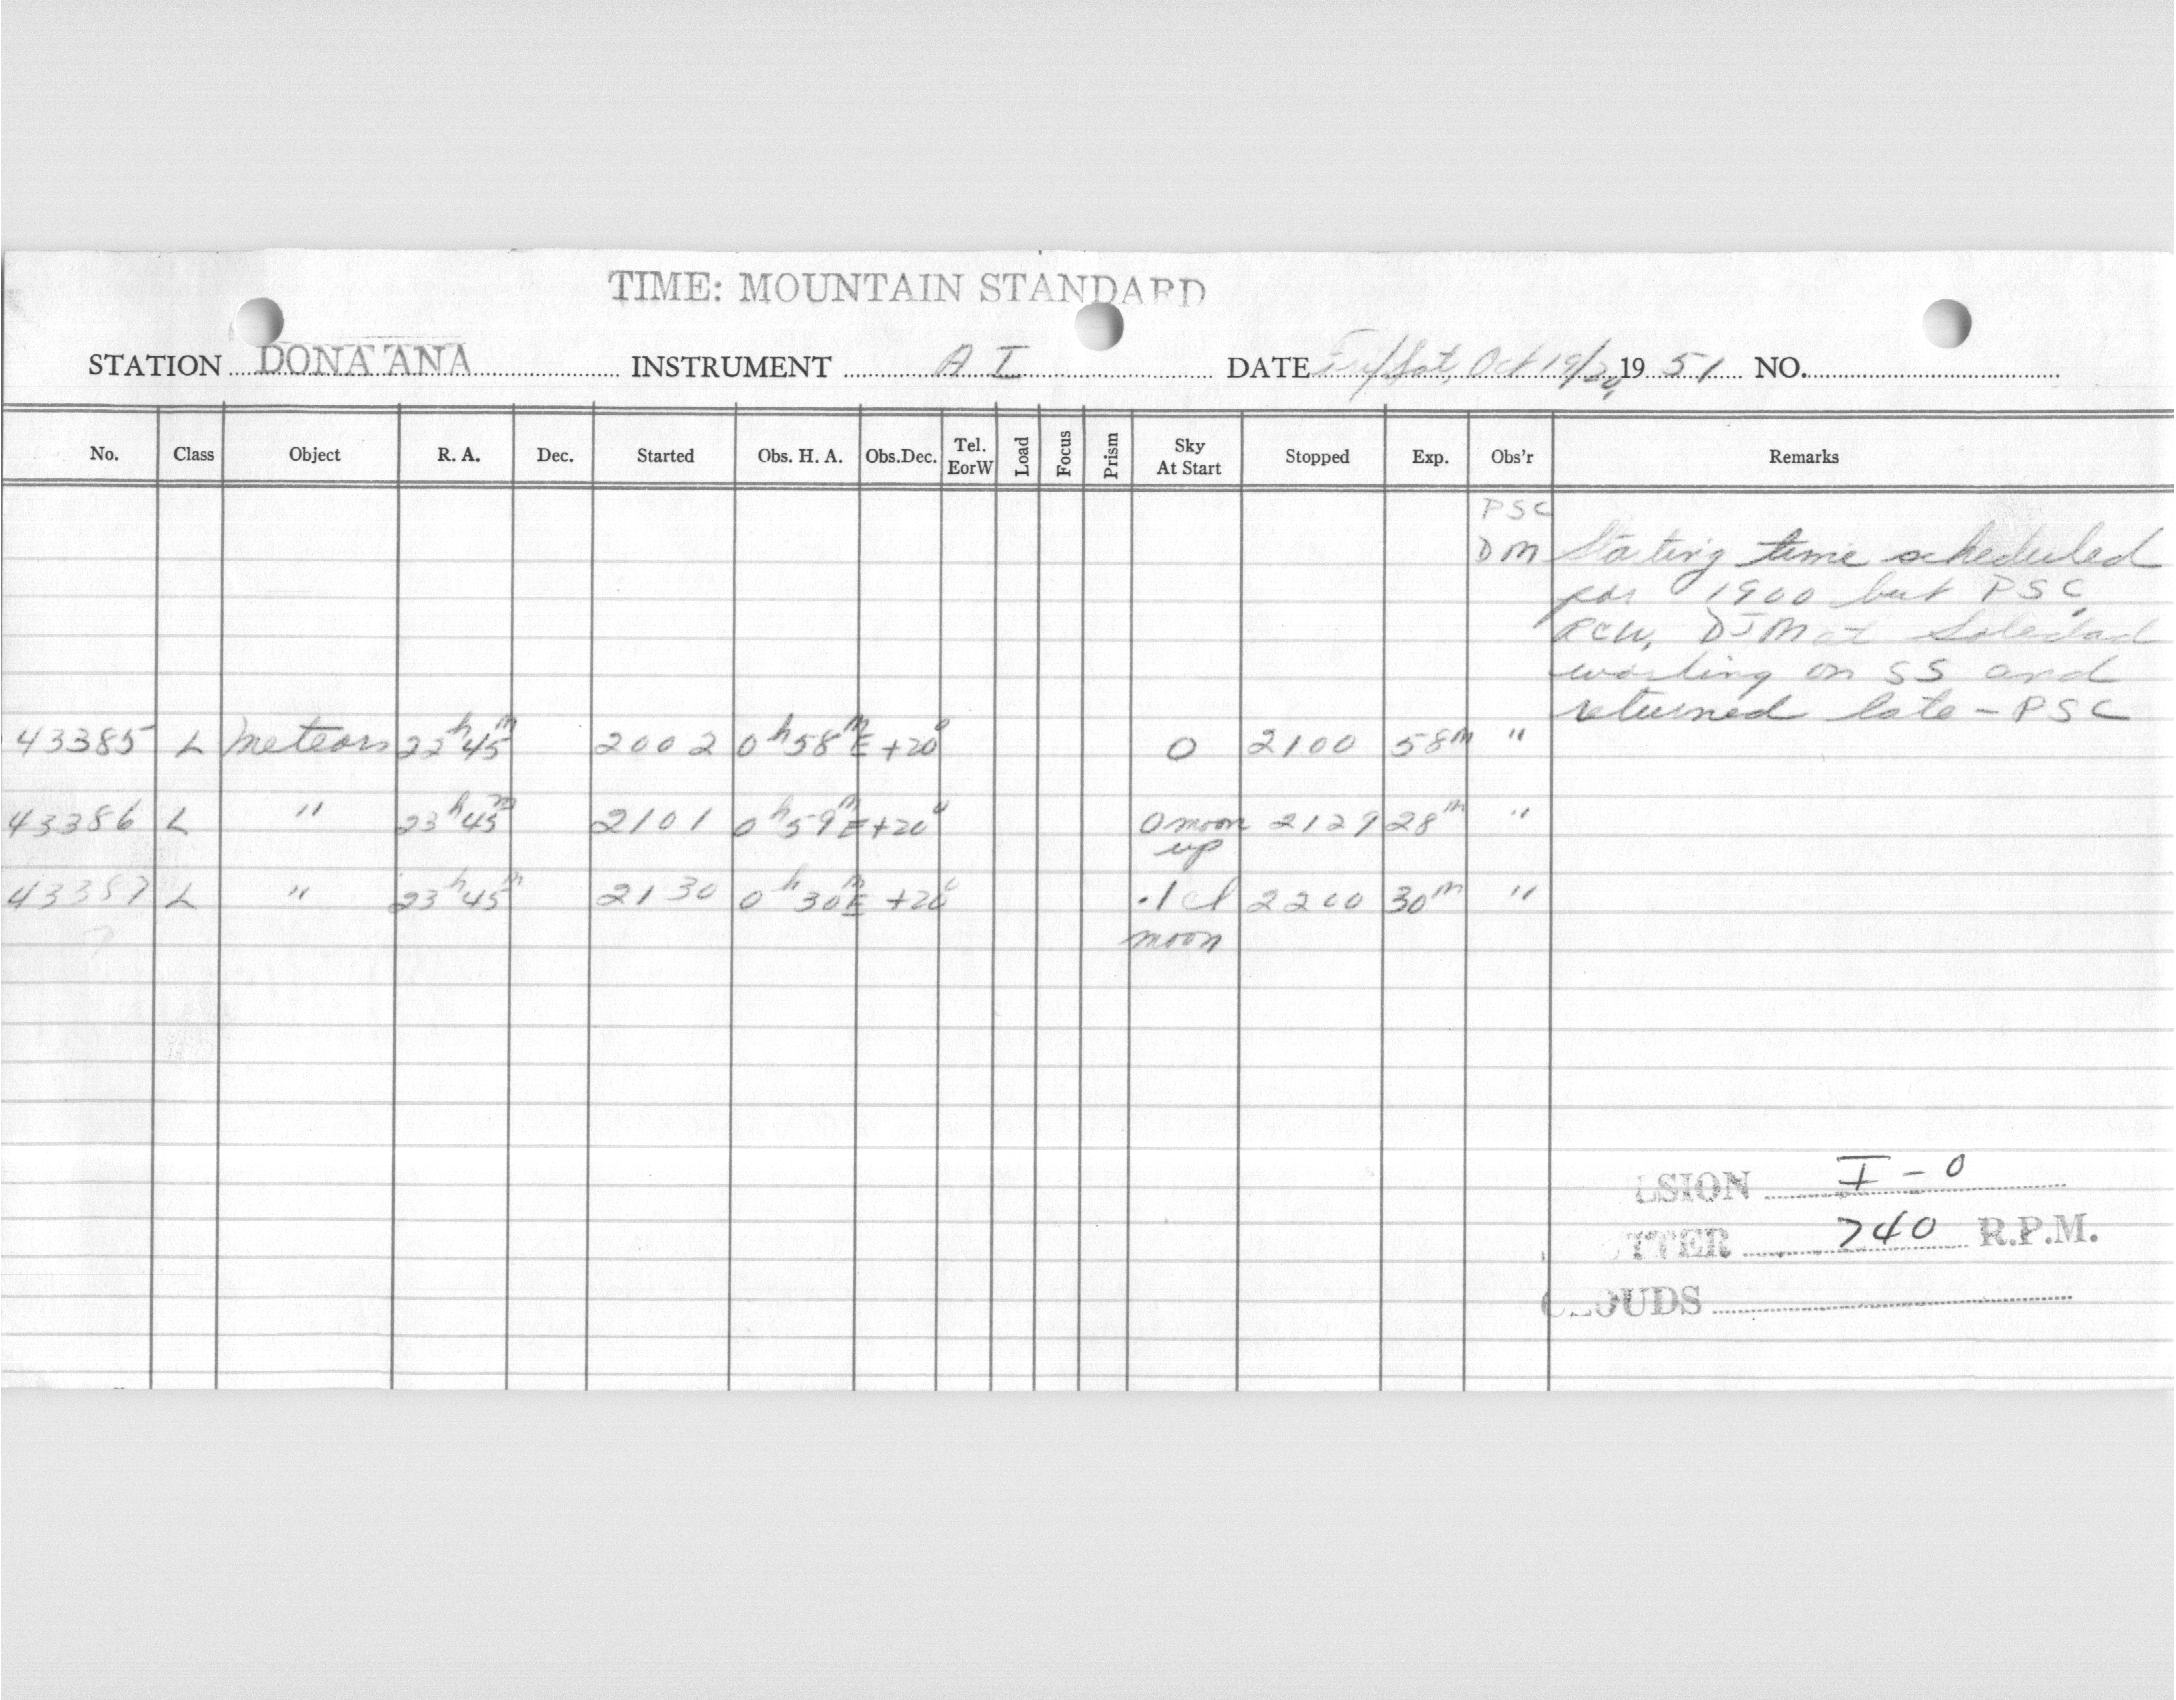 TIME: MOUNTAIN STANDARD
STATION DONA ANA INSTRUMENT A I DATE Fri/Sat, Oct 19/20, 19 51 NO.
No. Class Object R. A. Dec. Started Obs. H. A. Obs.Dec. Tel. EorW Load Focus Prism Sky At Start Stopped Exp. Obs'r Remarks
PSC
DM Starting time scheduled
for 1900 but PSC,
RCW, DJM at Soledad
working on SS and
returned late - PSC
43385 L meteors 22h45m 2002 0h58mE +20° 0 2100 58m "
43386 L " 23h45m 2101 0h59mE +20° 0 moon 2129 28m "
up
43387 L " 23h45m 2130 0h30mE +20° .1 cl 2200 30m "
7 moon
LSION I - 0
TTER 740 R.P.M.
CLOUDS